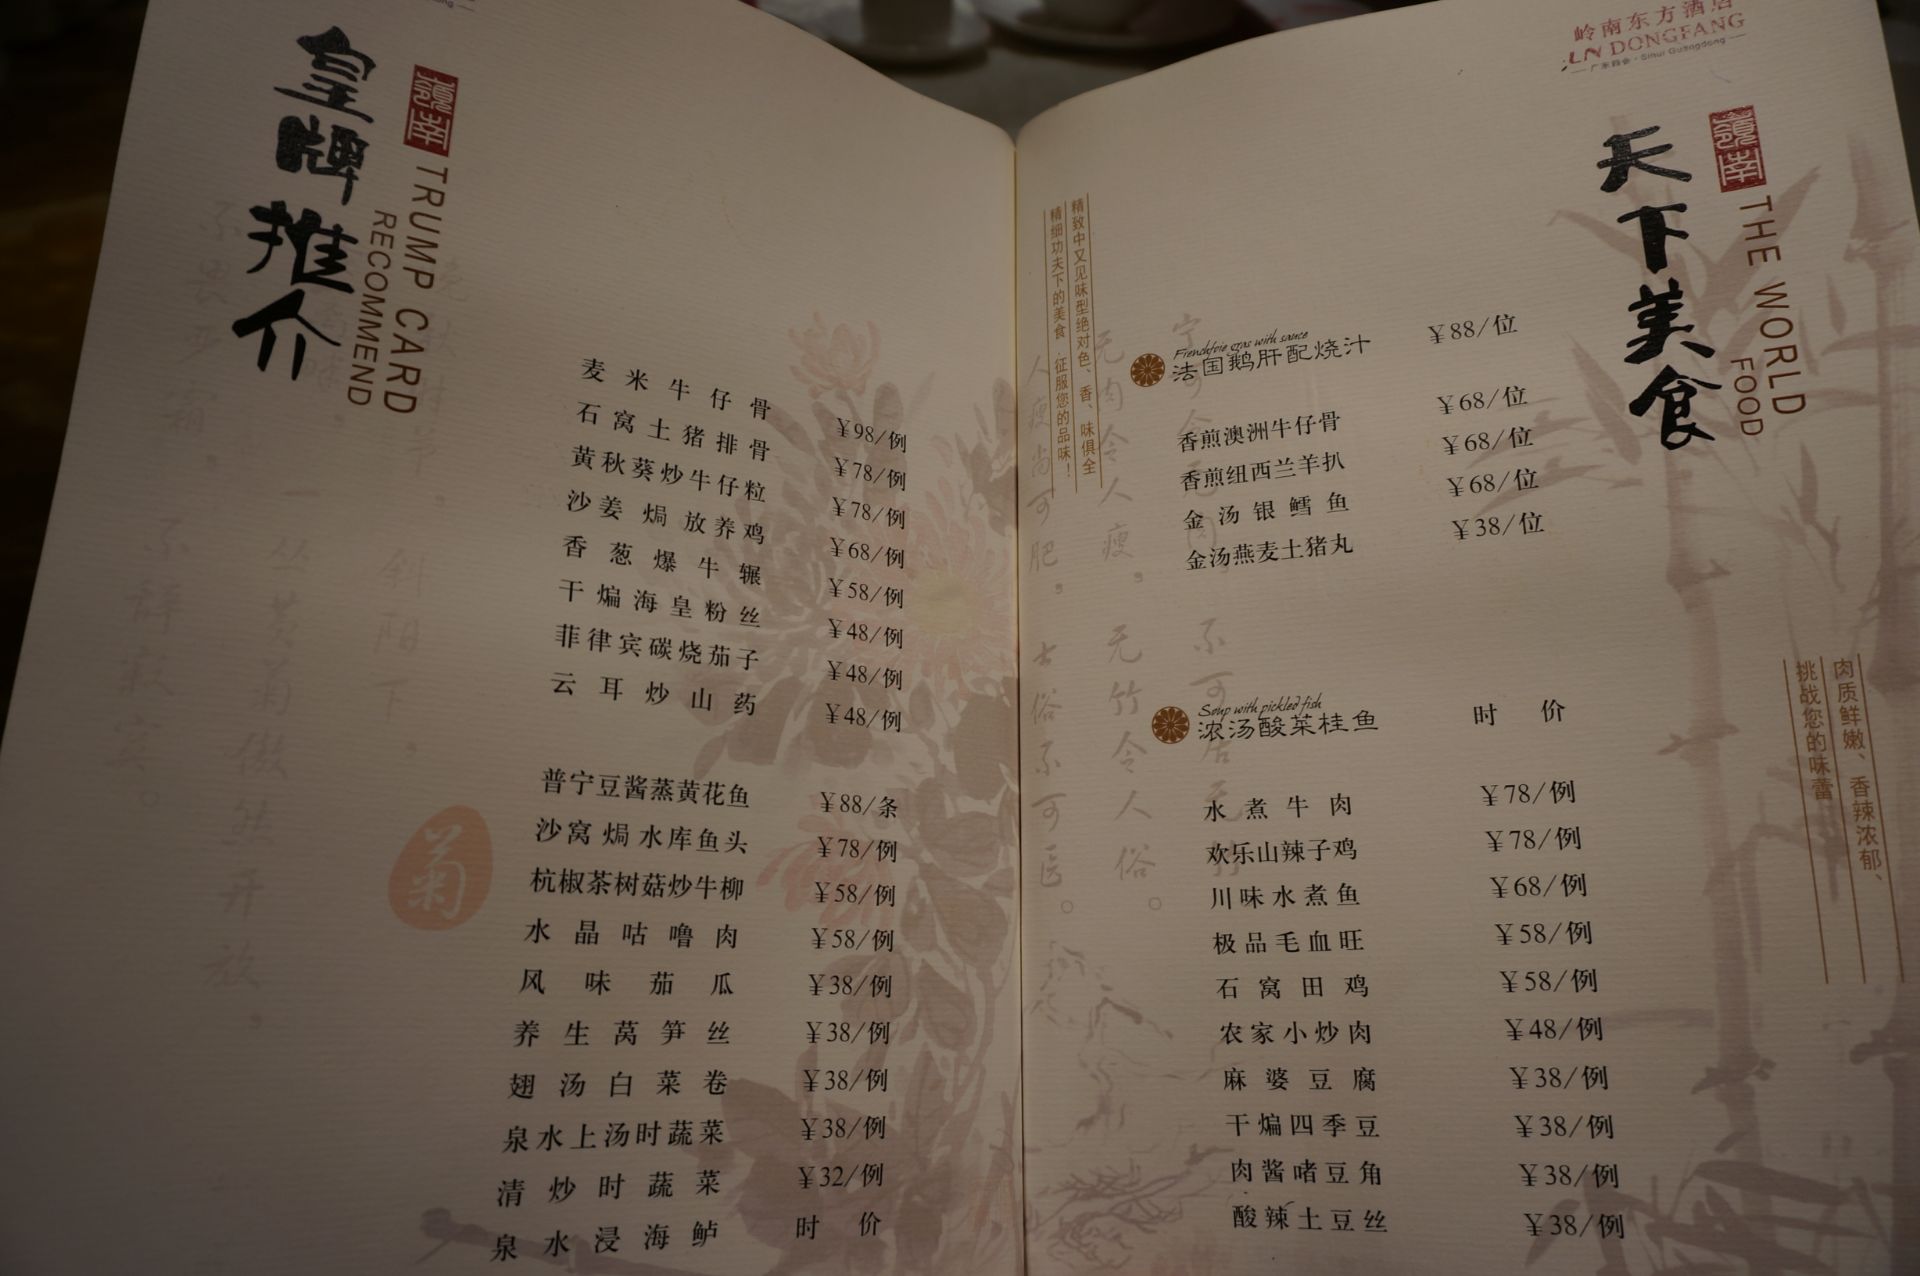 皇牌推介
嶺南
TRUMP CARD
RECOMMEND
麦米牛仔骨 ￥98/例
石窝土猪排骨 ￥78/例
黄秋葵炒牛仔粒 ￥78/例
沙姜焗放养鸡 ￥68/例
香葱爆牛𦟌 ￥58/例
干煸海皇粉丝 ￥48/例
菲律宾碳烧茄子 ￥48/例
云耳炒山药 ￥48/例
普宁豆酱蒸黄花鱼 ￥88/条
沙窝焗水库鱼头 ￥78/例
杭椒茶树菇炒牛柳 ￥58/例
水晶咕噜肉 ￥58/例
风味茄瓜 ￥38/例
养生莴笋丝 ￥38/例
翅汤白菜卷 ￥38/例
泉水上汤时蔬菜 ￥38/例
清炒时蔬菜 ￥32/例
泉水浸海鲈 时价
菊
岭南东方酒店
LN DONGFANG
广东四会·Sihui Guangdong
天下美食
嶺南
THE WORLD
FOOD
精致中又见味型绝对色、香、味俱全
精细功夫下的美食，征服您的品味！
法国鹅肝配烧汁 ￥88/位
香煎澳洲牛仔骨 ￥68/位
香煎纽西兰羊扒 ￥68/位
金汤银鳕鱼 ￥68/位
金汤燕麦土猪丸 ￥38/位
肉质鲜嫩、香辣浓郁、
挑战您的味蕾
Soup with pickled fish
浓汤酸菜桂鱼 时价
水煮牛肉 ￥78/例
欢乐山辣子鸡 ￥78/例
川味水煮鱼 ￥68/例
极品毛血旺 ￥58/例
石窝田鸡 ￥58/例
农家小炒肉 ￥48/例
麻婆豆腐 ￥38/例
干煸四季豆 ￥38/例
肉酱啫豆角 ￥38/例
酸辣土豆丝 ￥38/例